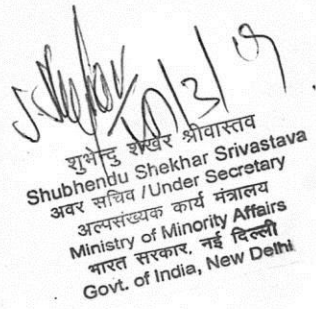 S. Shekhar
10/3/09
शुभेन्दु शेखर श्रीवास्तव
Shubhendu Shekhar Srivastava
अवर सचिव /Under Secretary
अल्पसंख्यक कार्य मंत्रालय
Ministry of Minority Affairs
भारत सरकार, नई दिल्ली
Govt. of India, New Delhi